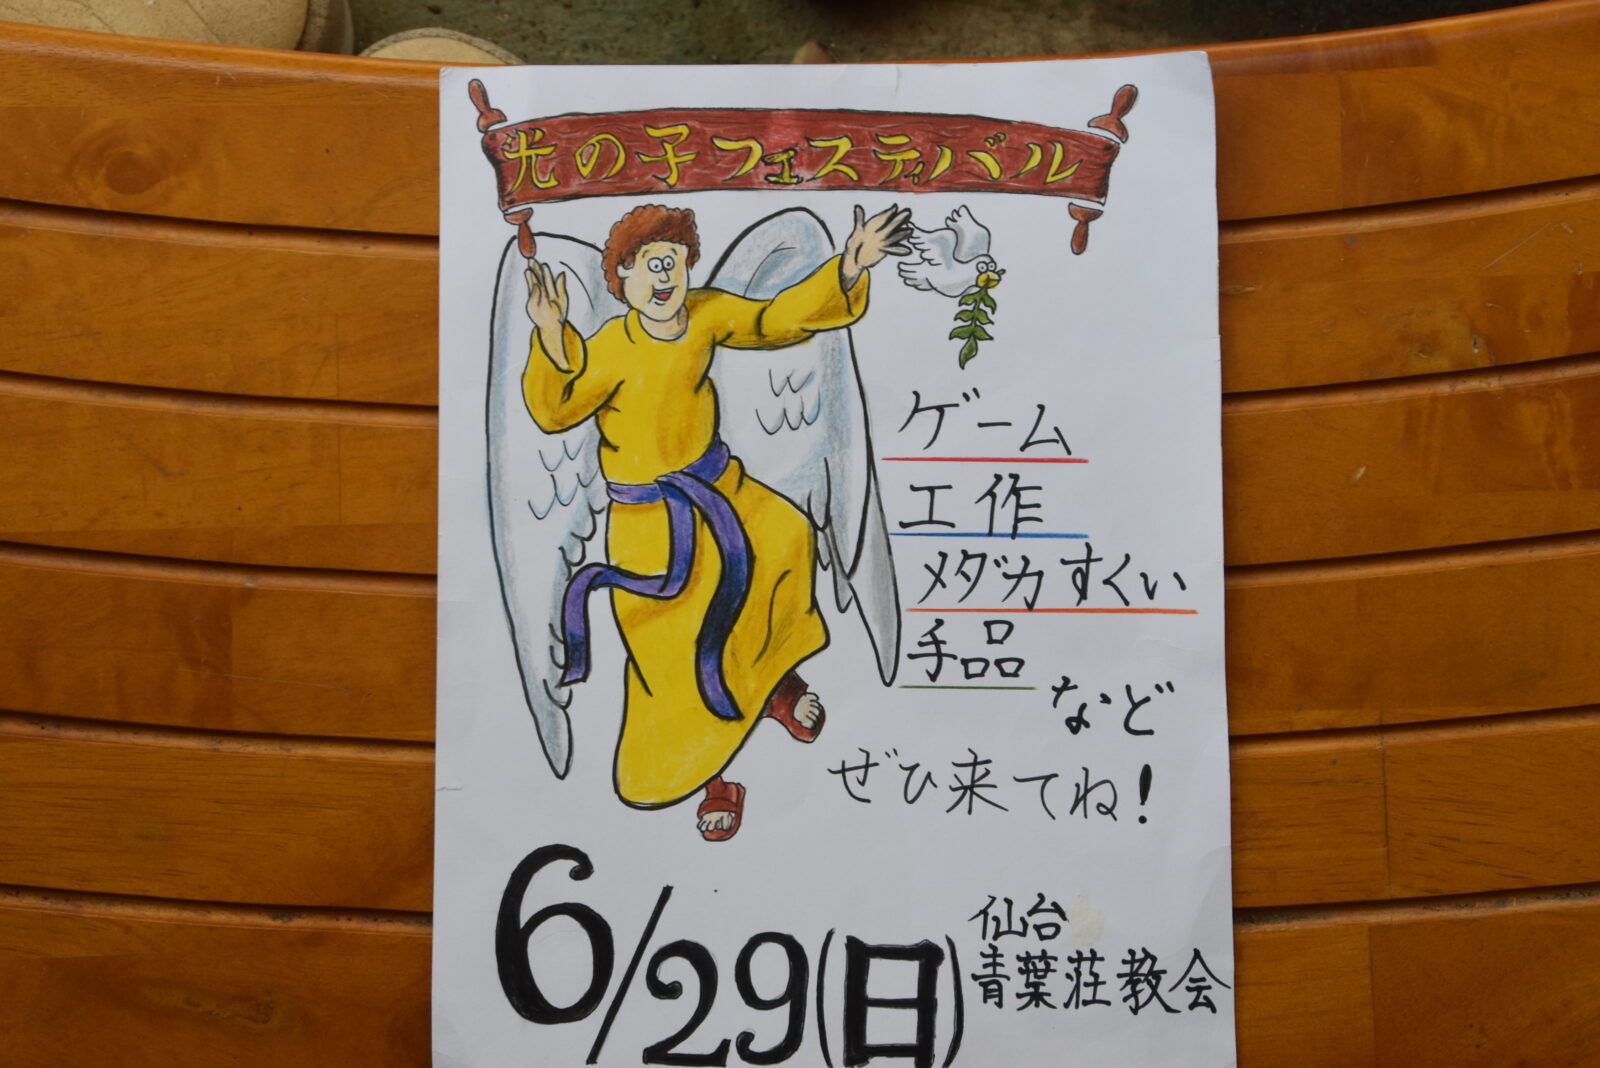 光の子フェスティバル
ゲーム
工作
メダカすくい
手品
など
ぜひ来てね!
6/29(日)
仙台
青葉荘教会